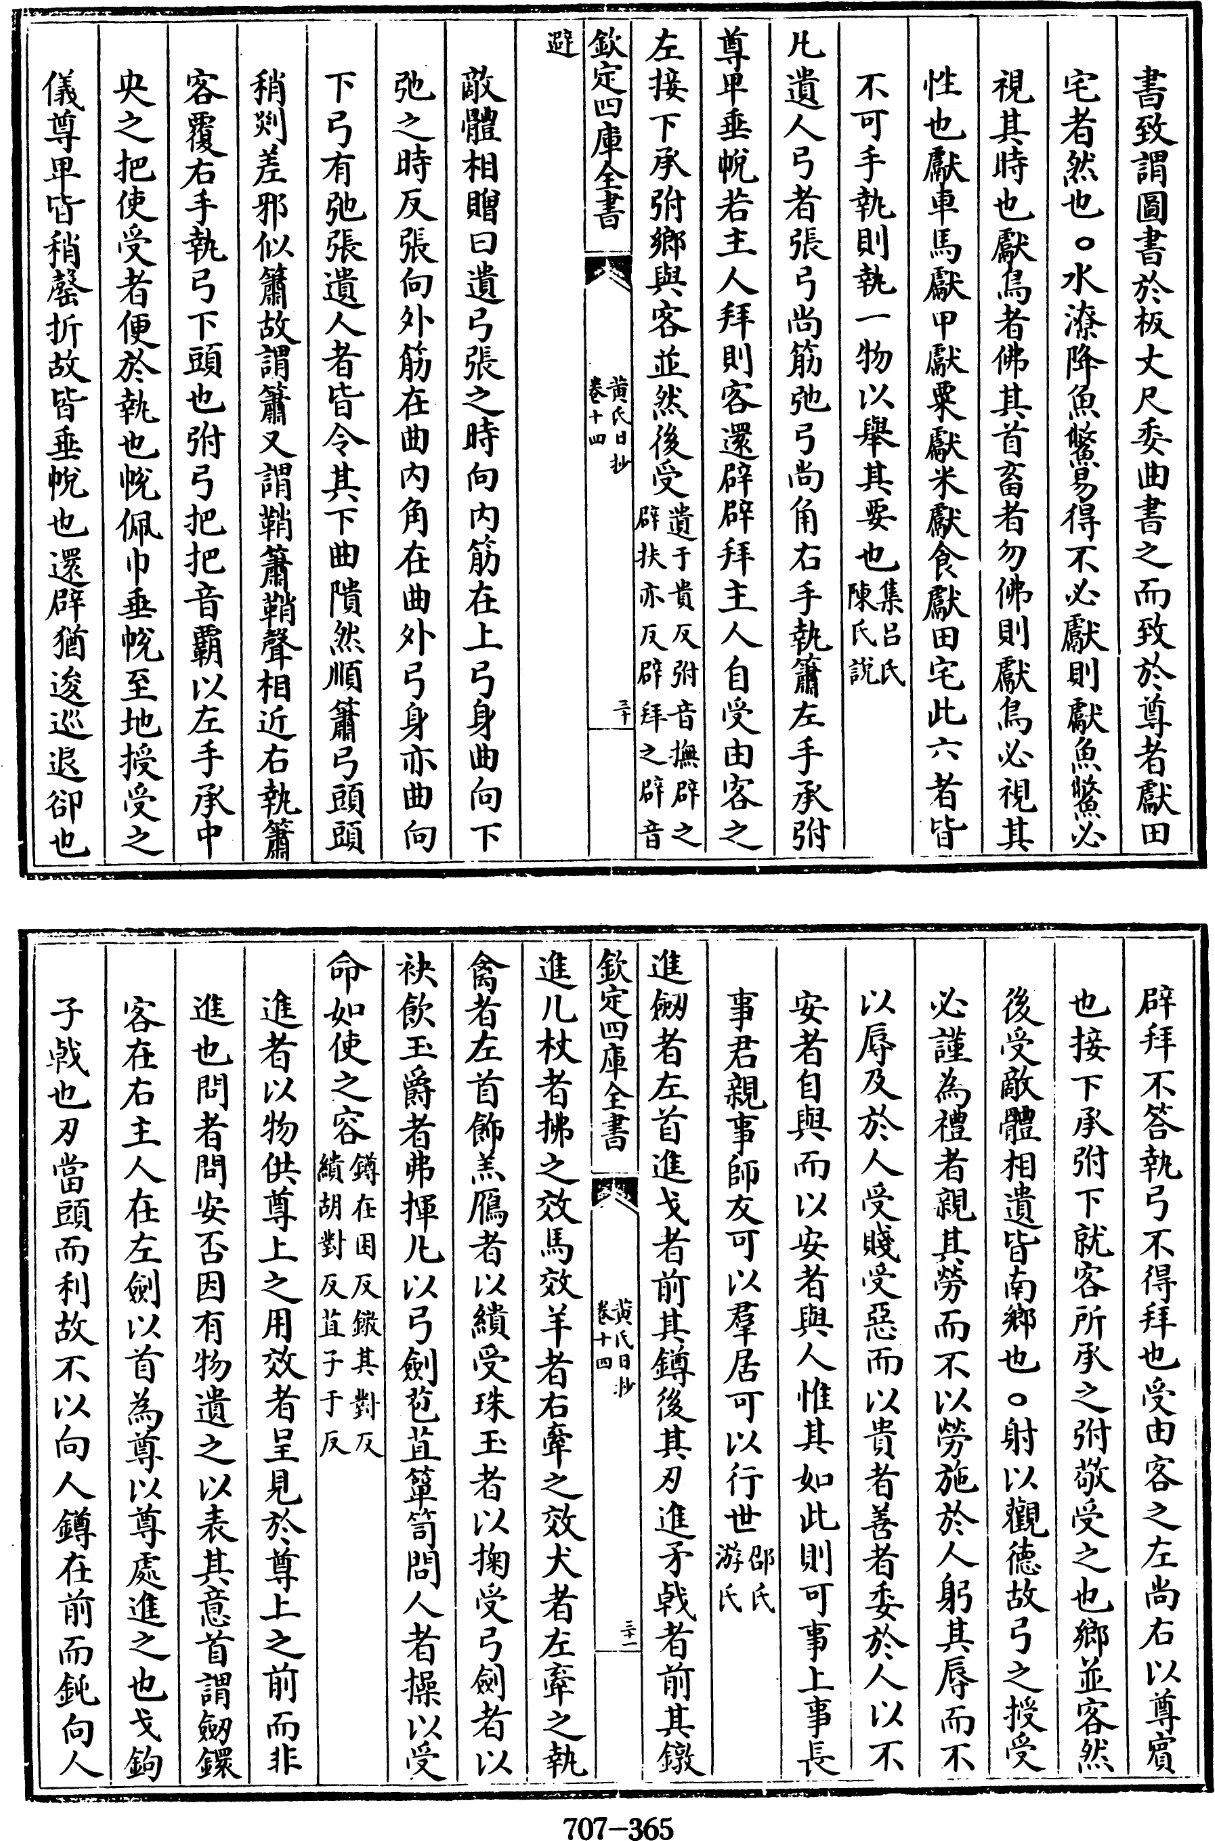 書致謂圖書於板丈尺委曲書之而致於尊者獻田
宅者然也○水潦降魚鱉易得不必獻則獻魚鱉必
視其時也獻鳥者佛其首畜者勿佛則獻鳥必視其
性也獻車馬獻甲獻粟獻米獻食獻田宅此六者皆
不可手執則執一物以舉其要也集呂氏陳氏說
凡遺人弓者張弓尚筋弛弓尚角右手執簫左手承弣
尊卑垂帨若主人拜則客還辟辟拜主人自受由客之
左接下承弣鄉與客並然後受遺于貴反弣音撫辟之辟扶亦反辟拜之辟音
避
欽定四庫全書
黃氏日抄
卷十四
三十
敵體相贈曰遺弓張之時向內筋在上弓身曲向下
弛之時反張向外筋在曲內角在曲外弓身亦曲向
下弓有弛張遺人者皆令其下曲隤然順簫弓頭頭
稍剡差邪似簫故謂簫又謂鞘簫鞘聲相近右執簫
客覆右手執弓下頭也弣弓把把音霸以左手承中
央之把使受者便於執也帨佩巾垂帨至地授受之
儀尊卑皆稍罄折故皆垂帨也還辟猶逡巡退卻也
辟拜不答執弓不得拜也受由客之左尚右以尊賓
也接下承弣下就客所承之弣敬受之也鄉並客然
後受敵體相遺皆南鄉也○射以觀德故弓之授受
必謹為禮者親其勞而不以勞施於人躬其辱而不
以辱及於人受賤受惡而以貴者善者委於人以不
安者自與而以安者與人惟其如此則可事上事長
事君親事師友可以羣居可以行世邵氏游氏
進劒者左首進戈者前其鐏後其刃進矛戟者前其鐓
欽定四庫全書
黃氏日抄
卷十四
三十一
進几杖者拂之效馬效羊者右牽之效犬者左牽之執
禽者左首飾羔鴈者以繢受珠玉者以掬受弓劍者以
袂飲玉爵者弗揮凡以弓劍苞苴簞笥問人者操以受
命如使之容鐏在困反鐓其對反繢胡對反苴子于反
進者以物供尊上之用效者呈見於尊上之前而非
進也問者問安否因有物遺之以表其意首謂劒鐶
客在右主人在左劍以首為尊以尊處進之也戈鉤
子戟也刃當頭而利故不以向人鐏在前而鈍向人
707-365